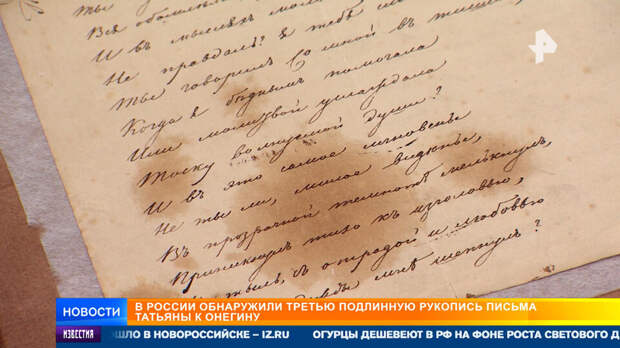 И въ мысляхъ
Не правда ль? Я тебя
Ты говорилъ со мной въ тиши,
Когда я бѣднымъ помогала
Или молитвой услаждала
Тоску волнуемой души?
И въ это самое мгновенье
Не ты ли, милое видѣнье,
Въ прозрачной темнотѣ мелькнулъ,
Приникнулъ тихо къ изголовью,
съ отрадой и любовью
мнѣ шепнулъ?
НОВОСТИ
В РОССИИ ОБНАРУЖИЛИ ТРЕТЬЮ ПОДЛИННУЮ РУКОПИСЬ ПИСЬМА
ТАТЬЯНЫ К ОНЕГИНУ
ИЗВЕСТИЯ
ШЛО В НОВОРОССИЙСКЕ – IZ.RU ОГУРЦЫ ДЕШЕВЕЮТ В РФ НА ФОНЕ РОСТА СВЕТОВОГО Д